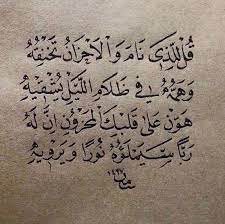 قُلْ لِلَّذِي نَامَ وَالْأَحْزَانُ تَخْنُقُهُ
وَهَمُّهُ فِي ظَلَامِ اللَّيْلِ يُشْقِيهِ
هَوِّنْ عَلَى قَلْبِكَ الْمَحْزُونِ إِنَّ لَهُ
رَبًّا سَيَمْلَؤُهُ نُورًا وَيَرْوِيهِ